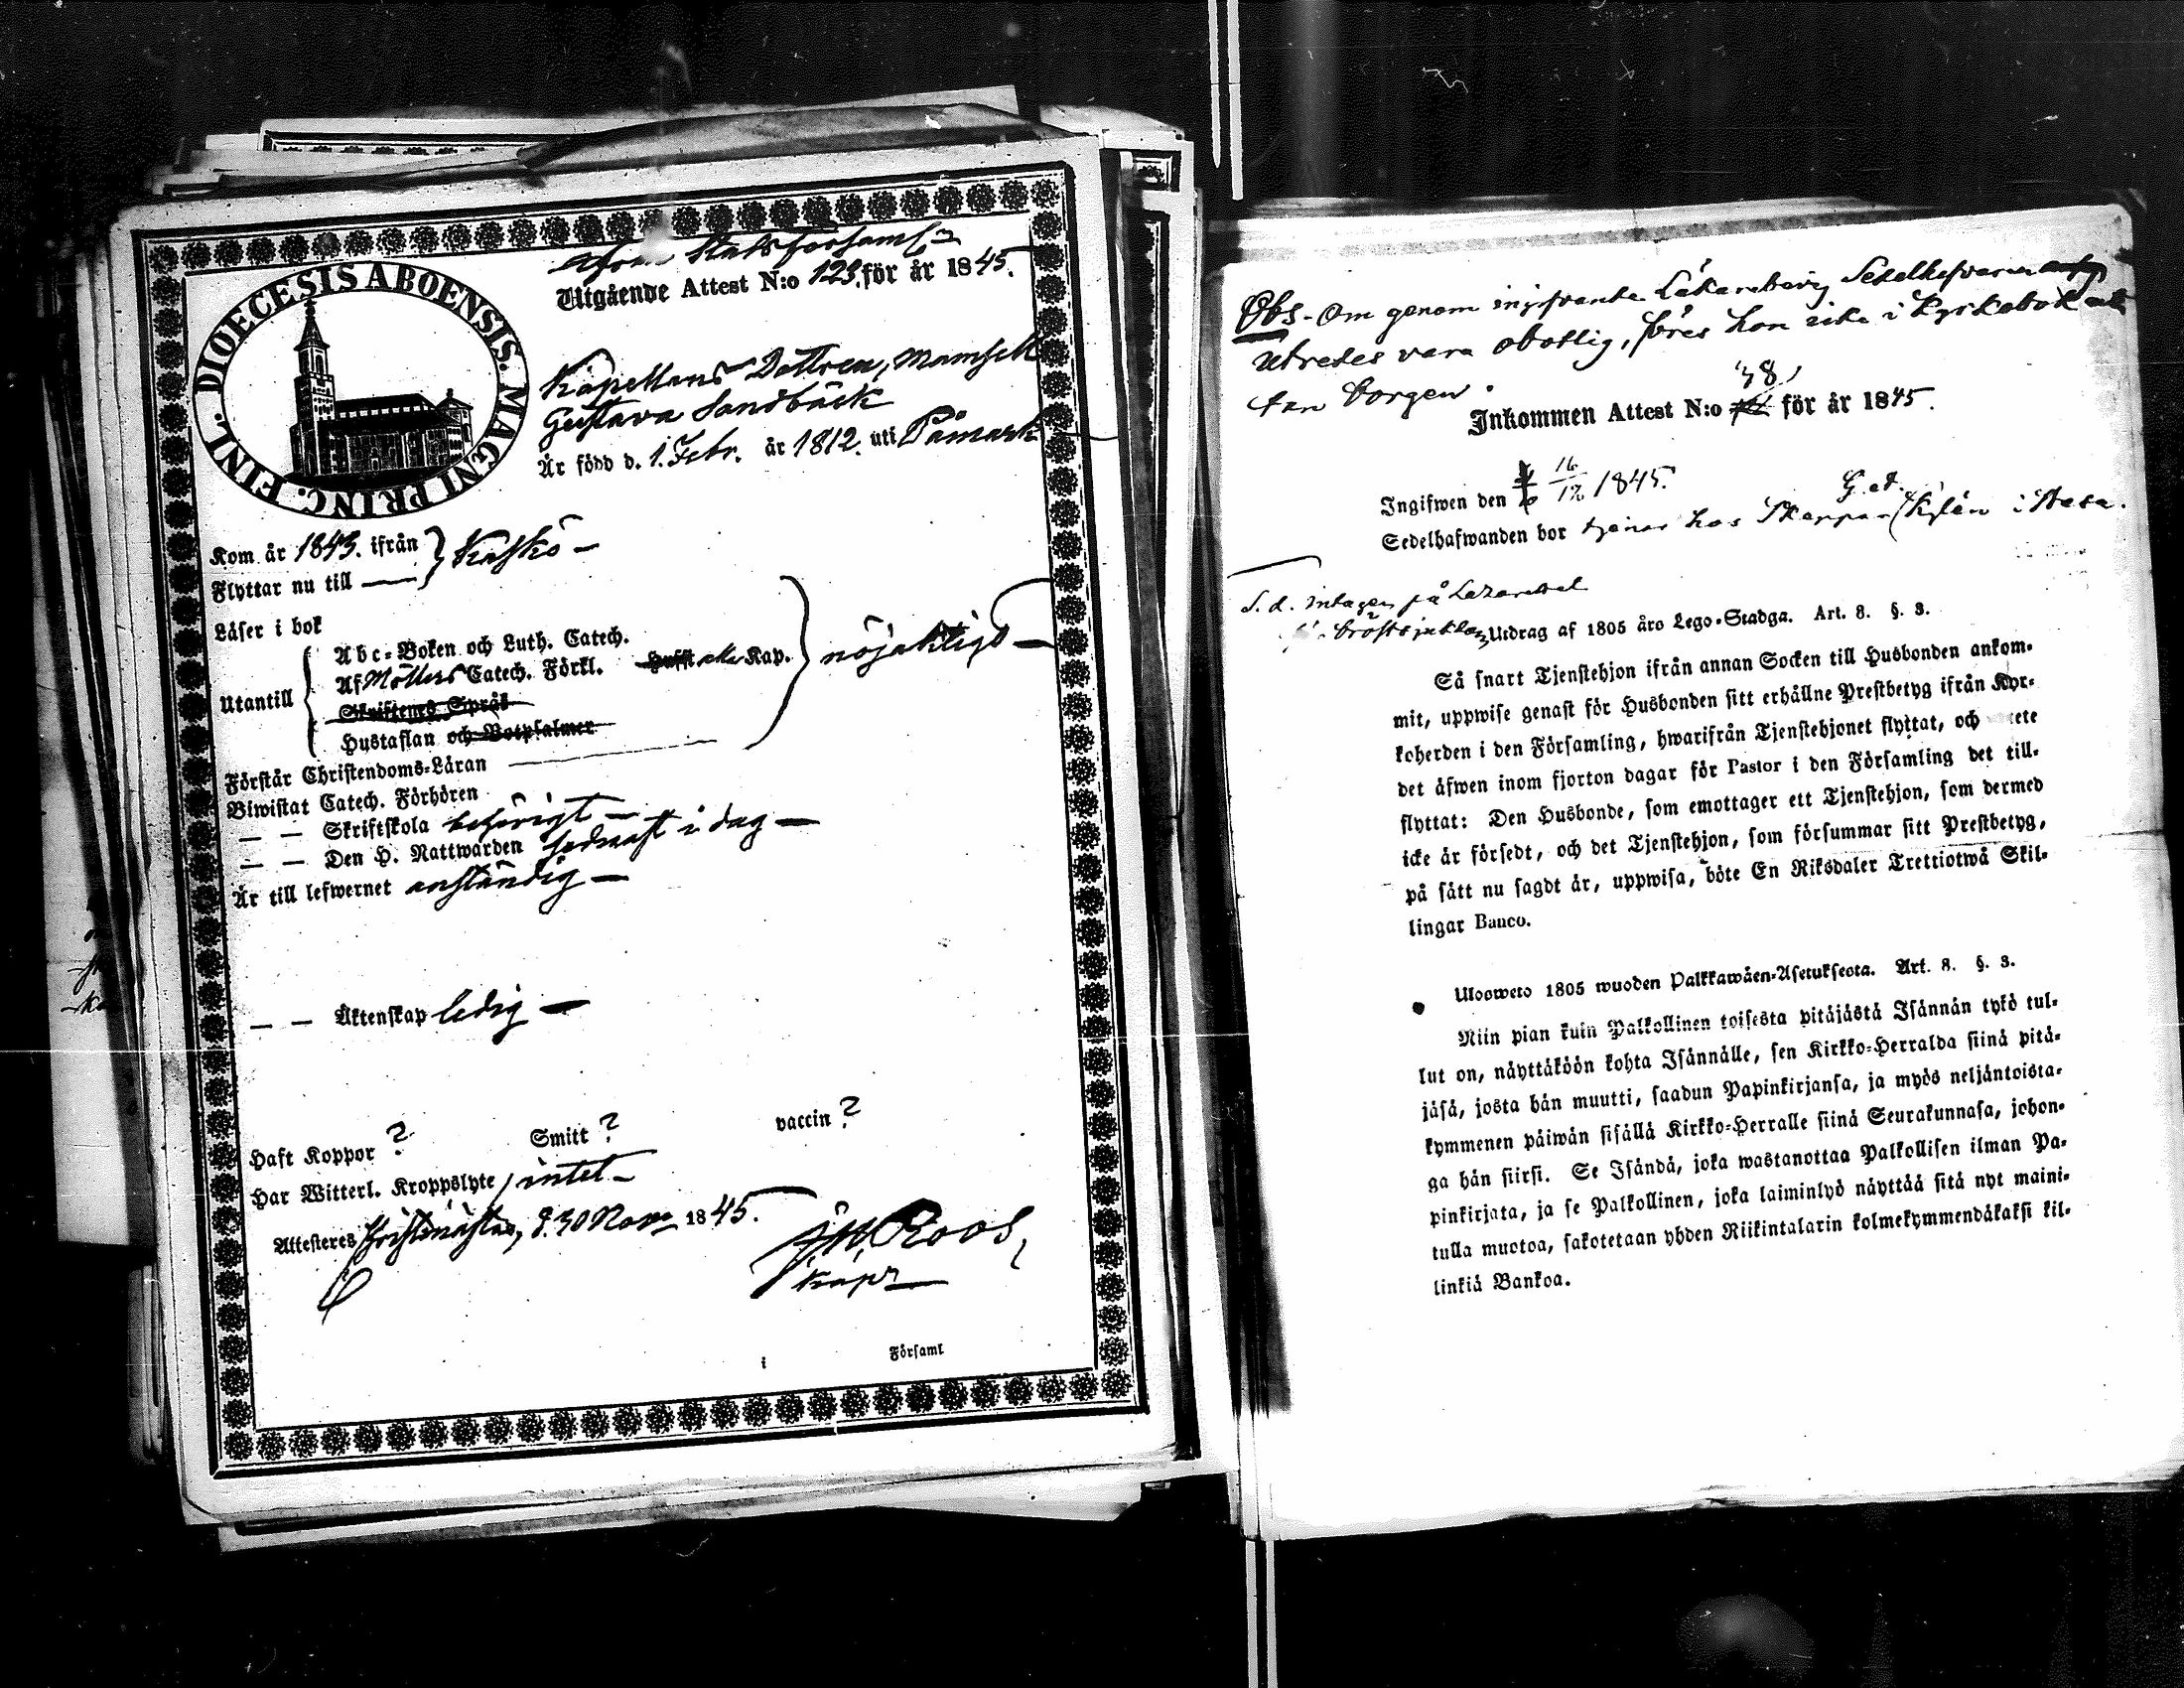 DIOECESIS ABOENSIS. MAGNI PRINC. FINL.
Stadsförsaml:
Utgående Attest N:o 123. för år 1845.
Kapellans Dottren, Mamsell
Gustava Sandbäck
Är född d. 1. Febr. år 1812. uti Påmark
Kom år 1843. ifrån } Kaskö –
Flyttar nu till —
Läser i bok
Utantill
Abc-Boken och Luth. Catech.
Af Möllers Catech. Förkl. Kap. nöjaktigt –
Skriftenes Språk
Hustaflan och Botpsalmer
Förstår Christendoms-Läran
Biwistat Catech. Förhören
— — Skriftskola behörigt –
— — Den H. Nattwarden sednast i dag –
Är till lefwernet anständig –
— — Äktenskap ledig –
Haft Koppor ? Smitt ? vaccin ?
Har Witterl. Kroppslyte, intet –
Attesteras Christinæstad, d. 30 Nov. 1845.
Roos,
Kapn
i Församl
Obs. Om genom Läkarebetyg Sedelhafvaren
utredes vara obotlig, föres hon icke i Kyrkobok
tan borgen.
Inkommen Attest N:o 48, för år 1845.
Ingifwen den 16/12 1845.
G. ad.
Sedelhafwanden bor tjenar hos Skeppar i Wasa.
S. d. intagen på Lazarettet
bröstsjukdom
Utdrag af 1805 års Lego-Stadga. Art. 8. §. 3.
Så snart Tjenstehjon ifrån annan Socken till Husbonden ankom-
mit, uppwise genast för Husbonden sitt erhållne Prestbetyg ifrån Kyr-
koherden i den Församling, hwarifrån Tjenstehjonet flyttat, och ete
det äfwen inom fjorton dagar för Pastor i den Församling det till-
flyttat: Den Husbonde, som emottager ett Tjenstehjon, som dermed
icke är försedt, och det Tjenstehjon, som försummar sitt Prestbetyg,
på sätt nu sagdt är, uppwisa, böte En Riksdaler Trettiotwå Skil-
lingar Banco.
Ulosweto 1805 wuoden Palkkawäen-Asetuksesta. Art. 8. §. 3.
Niin pian kuin Palkollinen toisesta pitäjästä Isännän tykö tul-
lut on, näyttäköön kohta Isännälle, sen Kirkko-Herralda siinä pitä-
jäsä, josta hän muutti, saadun Papinkirjansa, ja myös neljäntoista-
kymmenen päiwän sisällä Kirkko-Herralle siinä Seurakunnasa, johon-
ga hän siirsi. Se Isändä, joka wastanottaa Palkollisen ilman Pa-
pinkirjata, ja se Palkollinen, joka laiminlyö näyttää sitä nyt maini-
tulla muotoa, sakotetaan yhden Riikintalarin kolmekymmendäkaksi kil-
linkiä Bankoa.